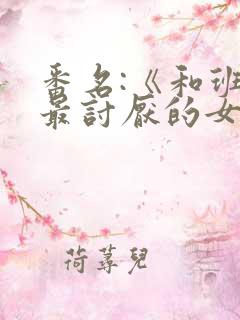 番名:《和班
最討厭的女
荷蓴兒